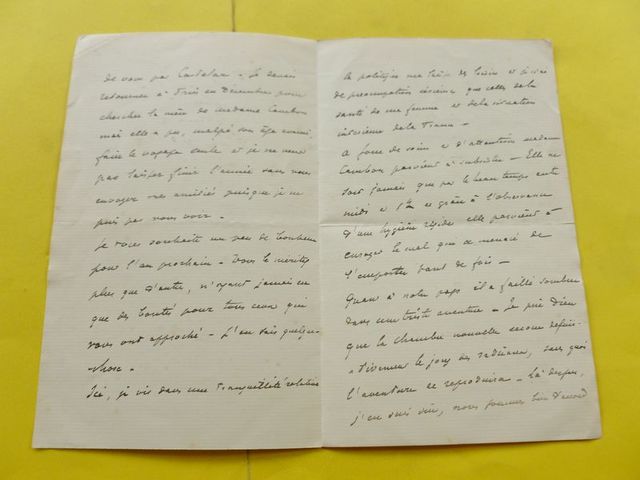 de vous par Castelar - Je devais
retourner à Paris en Décembre pour
chercher la mère de Madame Cambon
mais elle a pu, malgré son âge avancé,
faire le voyage seule et je ne veux
pas laisser finir l'année sans vous
envoyer mes amitiés puisque je ne
puis pas vous voir -
Je vous souhaite un peu de bonheur
pour l'an prochain - Vous le méritez
plus que d'autre, n'ayant jamais eu
que des bontés pour tous ceux qui
vous ont approché - J'en sais quelque
chose -
Ici, je vis dans une tranquillité relative
la politique me laisse des loisirs et
de préoccupation sérieuse que celles de la
santé de ma femme et de la situation
intérieure de la France -
A force de soins et d'attention madame
Cambon parvient à subsister - Elle ne
sort jamais que par le beau temps entre
midi et et grâce à l'observance
d'une hygiène rigide elle parvient à
enrayer le mal qui a menacé de
l'emporter tant de fois -
Quant à notre pays il a failli sombrer
dans une triste aventure - Je prie Dieu
que la chambre nouvelle secoue défini-
tivement le joug des radicaux, sans quoi
l'aventure se reproduira - Là dessus,
j'en suis sûr, nous sommes bien d'accord